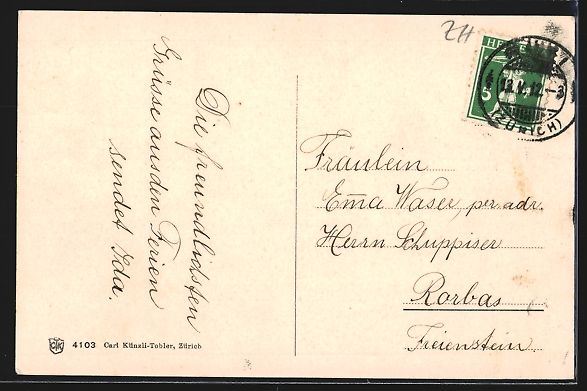 Die freundlichsten
Grüsse aus den Ferien
sendet Ida.
ZH
HELVETIA
5
(ZÜRICH)
Fräulein
Em̅a Waser, per adr.
Herrn Schuppiser
Rorbas
Freienstein
4103 Carl Künzli-Tobler, Zürich